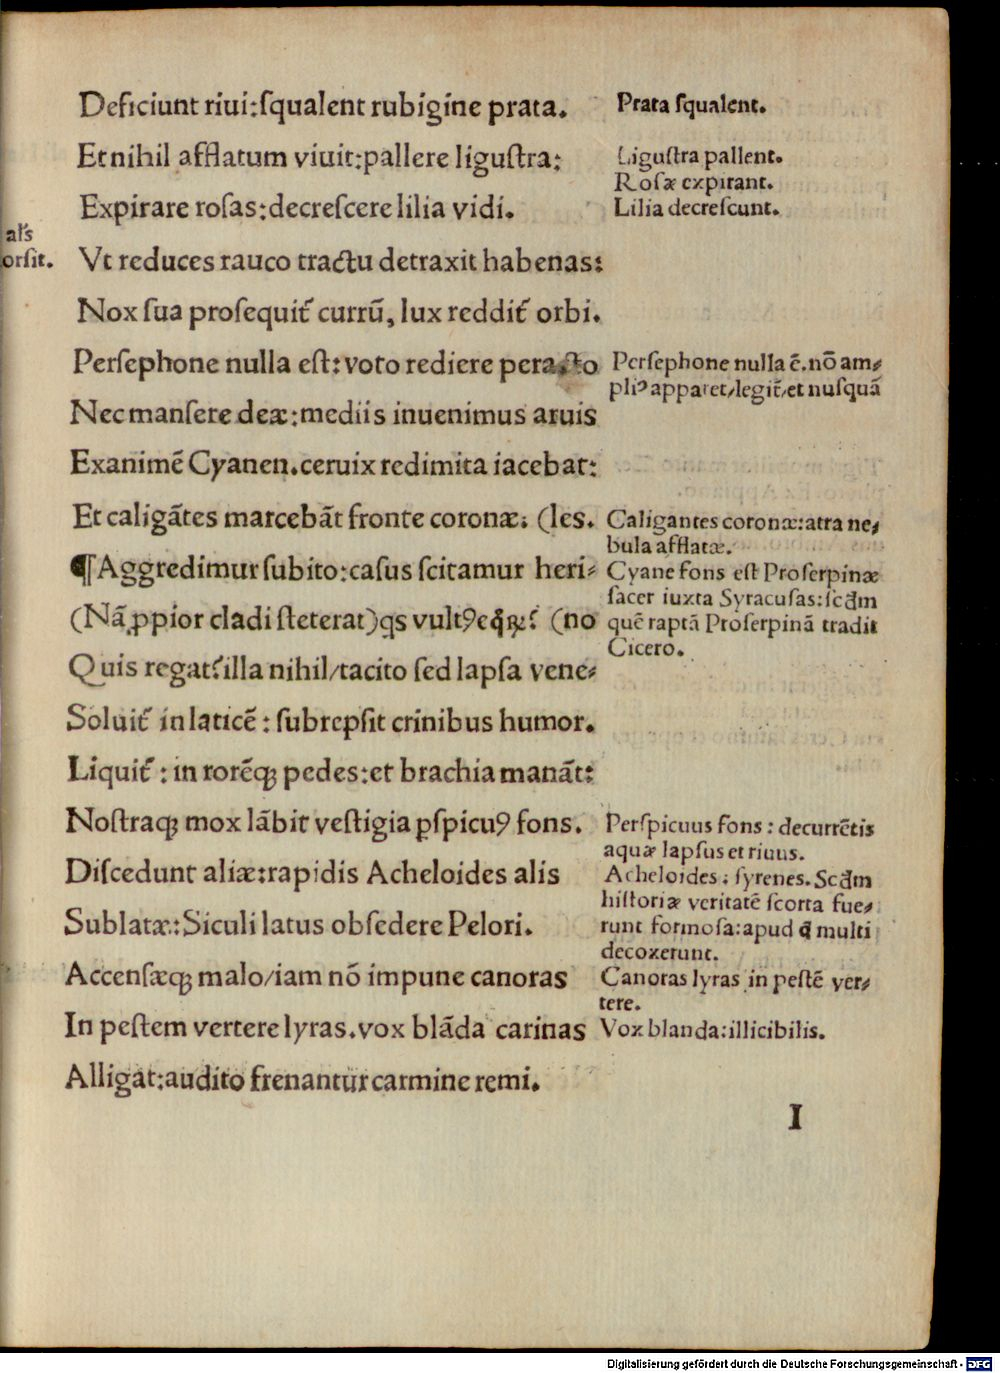 Deficiunt riui:ſqualent rubigine prata.
Et nihil afflatum viuit:pallere liguſtra:
Expirare roſas:decreſcere lilia vidi.
Vt reduces rauco tractu detraxit habenas:
Nox ſua proſequit᷑ currū, lux reddit᷑ orbi.
Perſephone nulla eſt:voto rediere peracto
Nec manſere deæ:mediis inuenimus aruis
Exanimē Cyanen.ceruix redimita iacebat:
Et caligātes marcebāt fronte coronæ. (les.
¶Aggredimur ſubito:caſus ſcitamur heri⸗
(Nā ꝓpior cladi ſteterat)qs vultꝰ eqͦꝝ? (no
Quis regat?illa nihil/tacito ſed lapſa vene⸗
Soluit᷑ in laticē : ſubrepſit crinibus humor.
Liquit᷑ : in rorēqꝫ pedes:et brachia manāt:
Noſtraqꝫ mox lābit veſtigia ꝑſpicuꝰ fons.
Diſcedunt aliæ:rapidis Acheloides alis
Sublatæ:Siculi latus obſedere Pelori.
Accenſæqꝫ malo/iam nō impune canoras
In peſtem vertere lyras.vox blāda carinas
Alligat:audito frenantur carmine remi.
al's
orſit.
Prata ſqualent.
Liguſtra pallent.
Roſæ expirant.
Lilia decreſcunt.
Perſephone nulla ē.nō am⸗
pliꝰ apparet/legit᷑/et nuſquā
Caligantes coronæ:atra ne⸗
bula afflatæ.
Cyane fons eſt Proſerpinæ
ſacer iuxta Syracuſas:ſcd̄m
quē raptā Proſerpinā tradit
Cicero.
Perſpicuus fons : decurrētis
aquæ lapſus et riuus.
Acheloides : ſyrenes. Scd̄m
hiſtoriæ veritatē ſcorta fue⸗
runt formoſa:apud q̄ multi
decoxerunt.
Canoras lyras in peſtē ver⸗
tere.
Vox blanda:illicibilis.
I
Digitalisierung gefördert durch die Deutsche Forschungsgemeinschaft - DFG